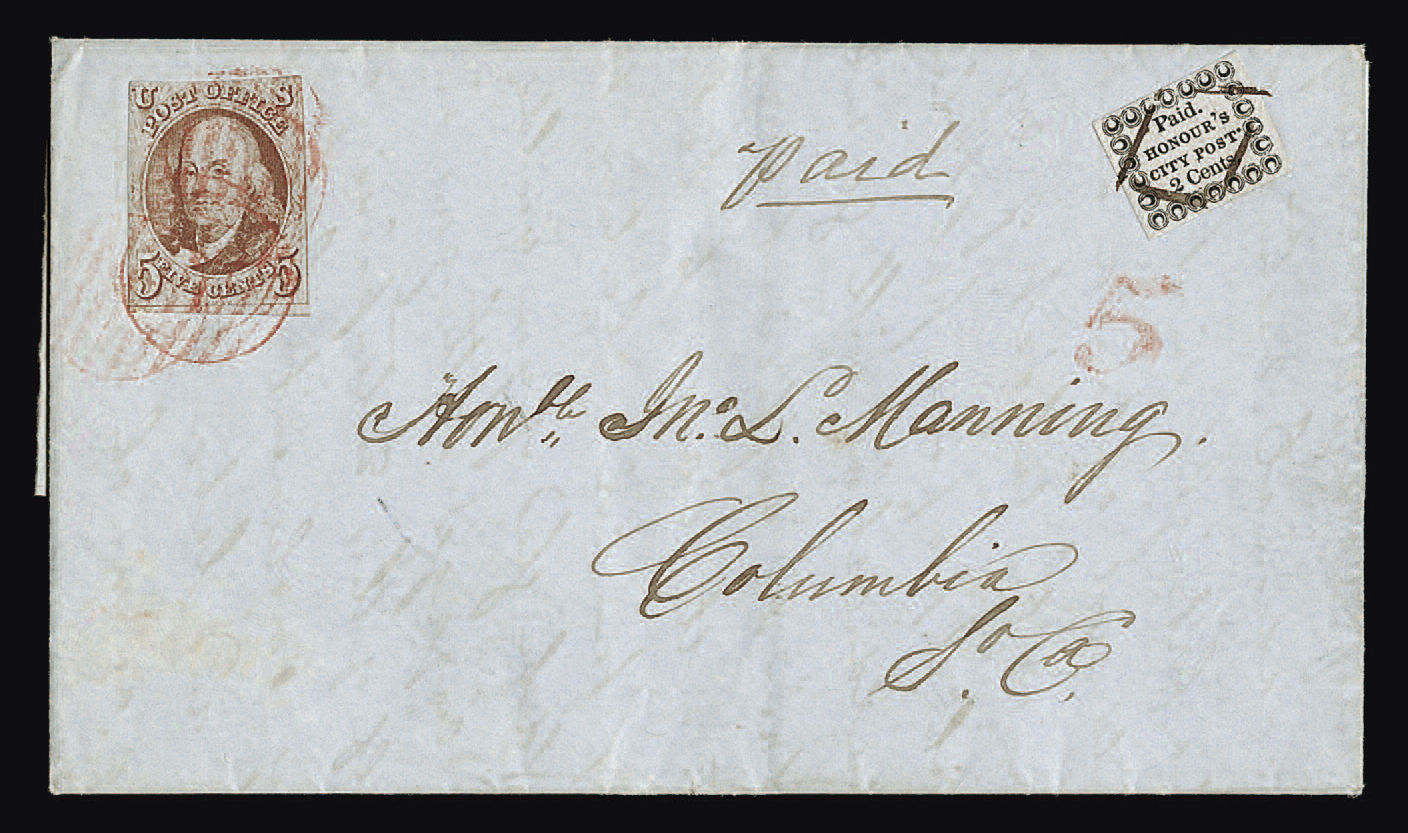 U S
POST OFFICE
5 FIVE CENTS 5
Paid
Paid.
HONOUR'S
CITY POST.
2 Cents.
5
Honble Jno. L. Manning.
Columbia
So. Ca.